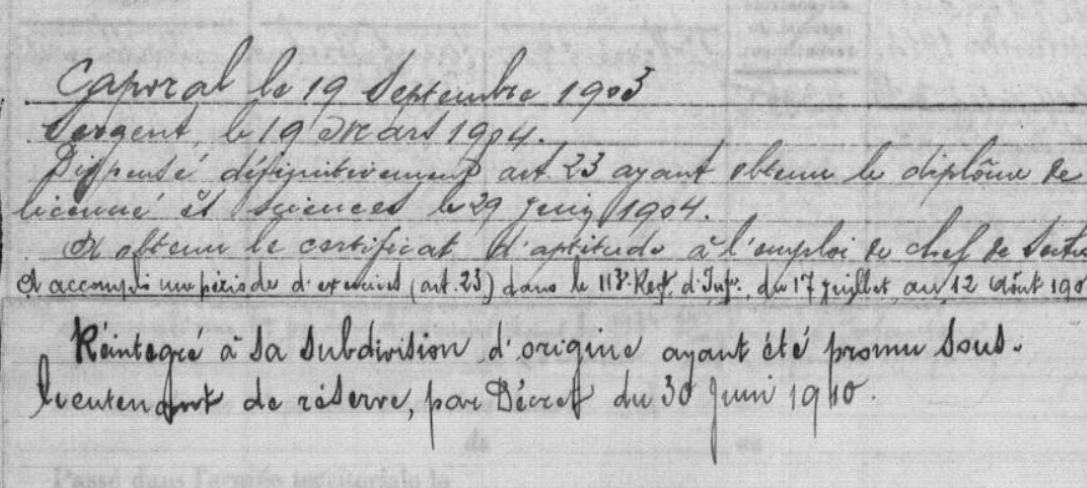 Caporal le 19 Septembre 1903
Sergent, le 19 Mars 1904.
Dispensé définitivement art. 23 ayant obtenu le diplôme de
licencié ès sciences le 29 Juin 1904.
A obtenu le certificat d'aptitude à l'emploi de chef de Sectio
A accompli une période d'exercices (art. 23) dans le 113e Regt. d'Infie. du 17 Juillet au 12 Août 190
Réintegré à sa subdivision d'origine ayant été promu Sous-
lieutenant de réserve, par Décret du 30 Juin 1910.
de
Passé dans l'armée territoriale le